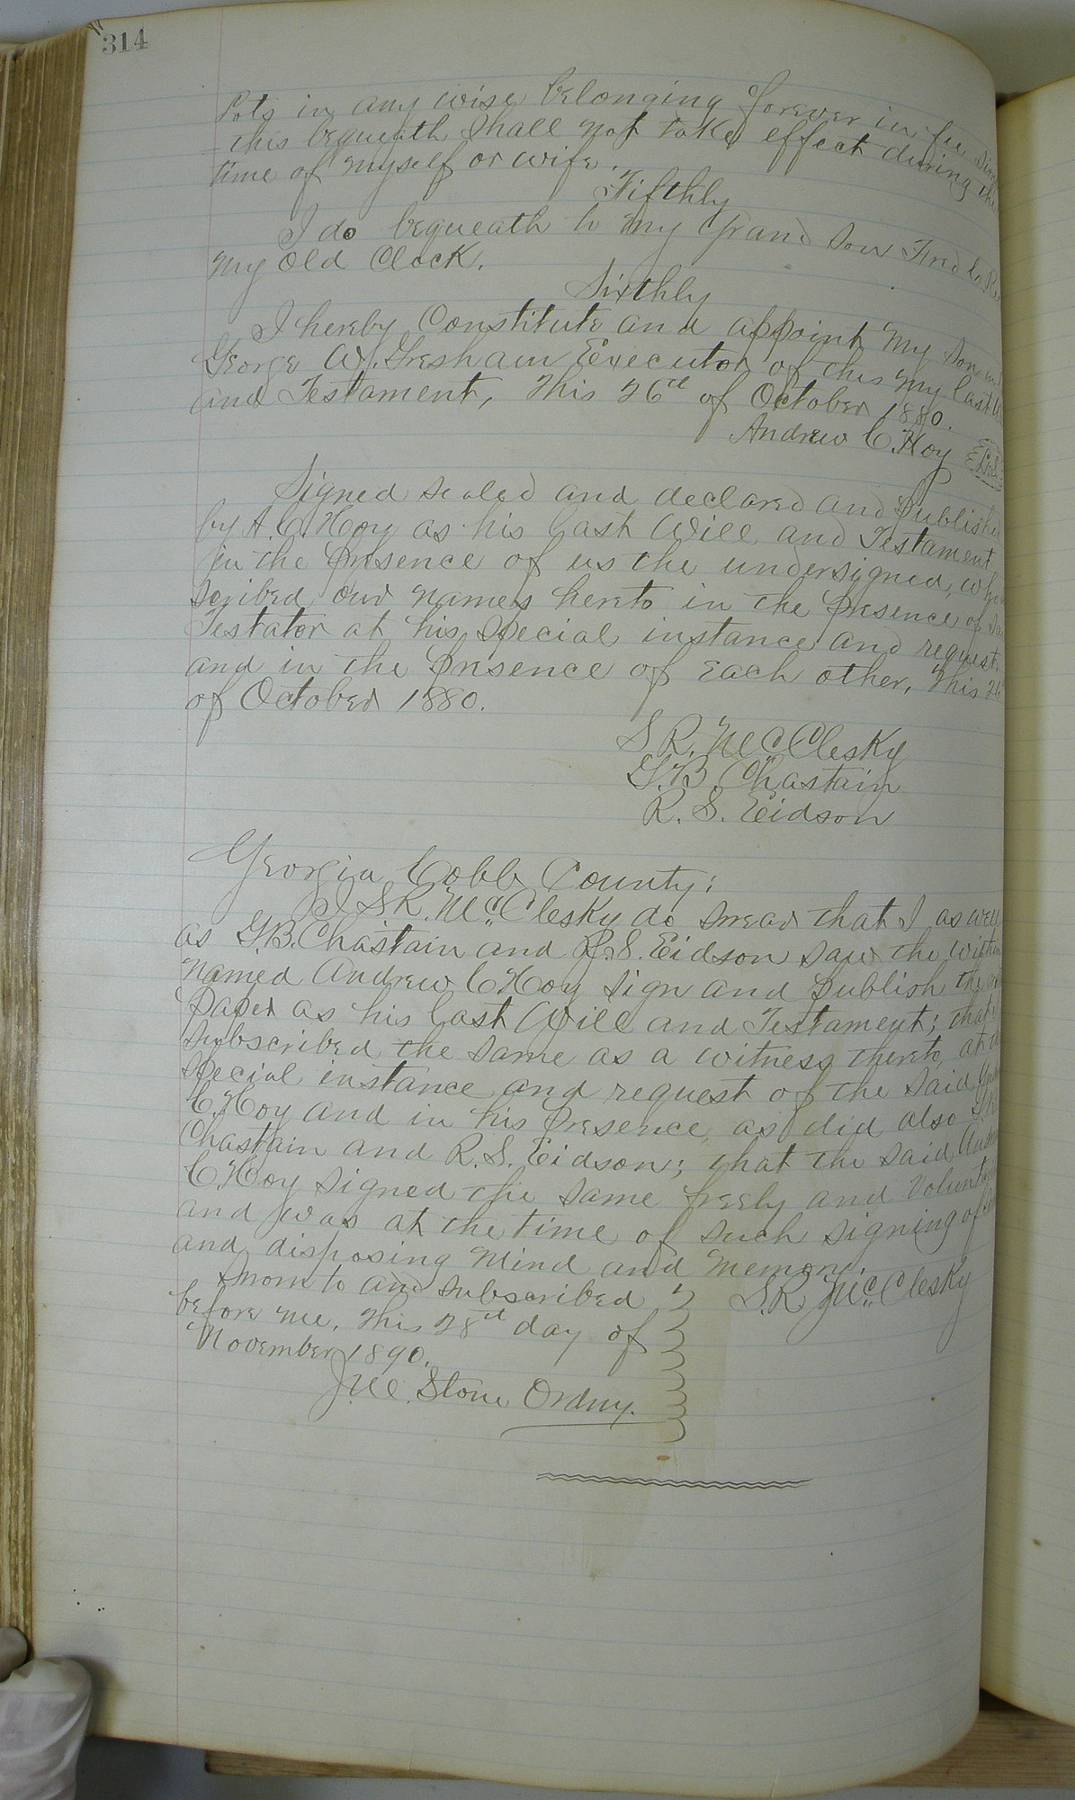 314
Lots in any wise belonging forever in fee
this bequeath shall not take effect during the
time of myself or wife.
Fifthly
I do bequeath to my Grand Son Fred
my Old Clock.
Sixthly
I hereby Constitute and appoint my Son
George W. Gresham Executor of this my last
and Testament, This 26th of October 1880.
Andrew C. Hoy
Signed sealed and declared and Publish
by A. C. Hoy as his last Will and Testament
in the Presence of us the undersigned, who
scribed our names hereto in the Presence of
Testator at his special instance and request.
and in the Presence of each other, This 26
of October 1880.
S R. McClesky
G. B. Chastain
R. S. Eidson
Georgia Cobb County:
I S R. McClesky do swear that I as well
as G.B. Chastain and R. S. Eidson saw the within
named Andrew C Hoy sign and Publish the
Paper as his last Will and Testament; that
Subscribed the same as a witness thereto at
special instance and request of the said
C. Hoy and in his Presence, as did also
Chastain and R. S. Eidson; that the said
C Hoy signed the same freely and Volunta
and was at the time of such signing of
and disposing mind and memory.
sworn to and subscribed S.R McClesky
before me, this 28th day of
November 1890.
J.M. Stone Ordny.